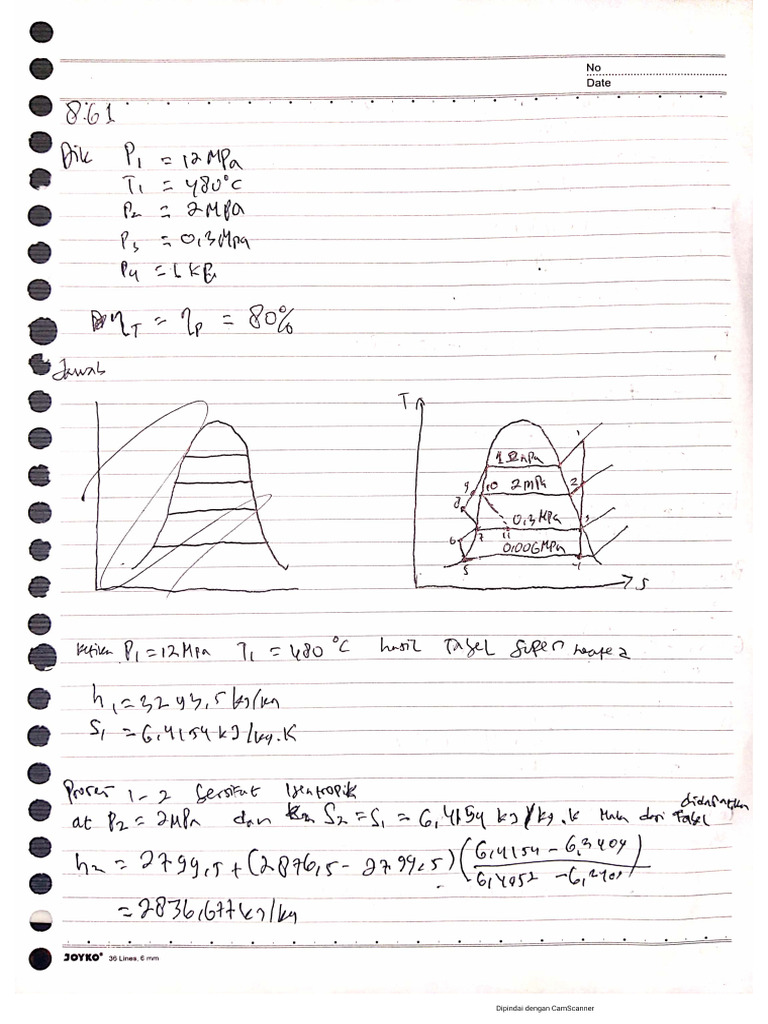 No
Date
8.61
Dik P₁ = 12 MPa
T₁ = 480°C
P₂ = 2 MPa
P₃ = 0,3 MPa
P₄ =
η_T = η_P = 80%
Jawab
T
1
12 MPa
9 10 2 MPa 2
8
0,3 MPa 3
6 7 11
0,006 MPa
5 4
S
Ketika P₁ = 12 MPa T₁ = 480°C hasil Tabel super
h₁ = 3293,5 kJ/kg
S₁ = 6,4154 kJ/kg.K
Proses 1-2 bersifat Isentropik
didapatkan
at P₂ = 2 MPa dan S₂ = S₁ = 6,4154 kJ/kg.K Maka dari Tabel
h₂ = 2799,5 + (2876,5 - 2799,5) (6,4154 - 6,3409 /
= 2836,677 kJ/kg
JOYKO® 36 Lines, 6 mm
Dipindai dengan CamScanner